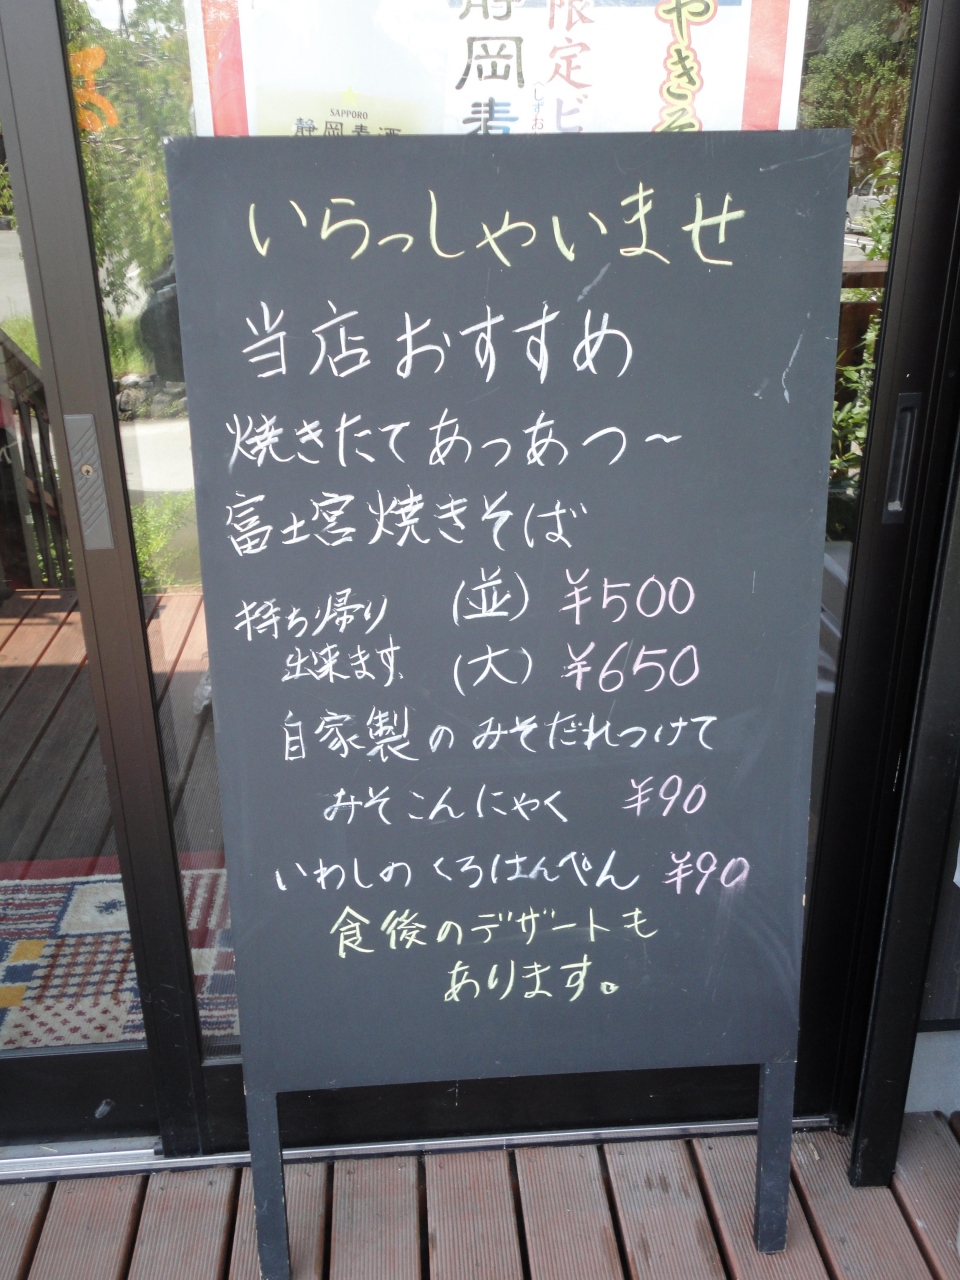 限定ビ
静岡麦
しずお
やきそ
SAPPORO
静岡麦酒
いらっしゃいませ
当店おすすめ
焼きたてあっあつ～
富士宮焼きそば
持ち帰り (並) ¥500
出来ます (大) ¥650
自家製のみそだれつけて
みそこんにゃく ¥90
いわしのくろはんぺん ¥90
食後のデザートも
あります。